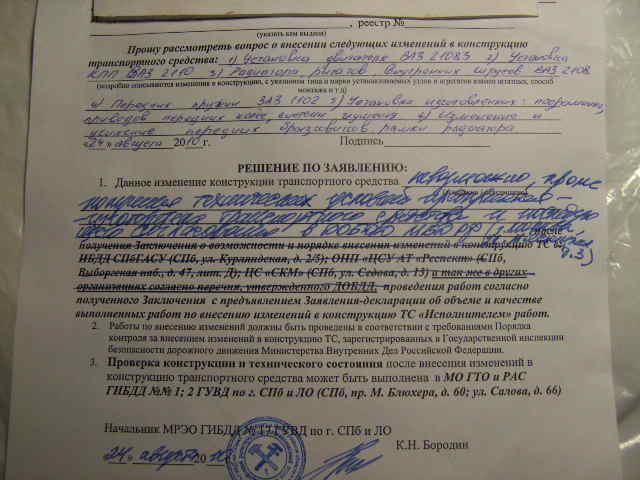 , реестр №
(указать кем выдана)
Прошу рассмотреть вопрос о внесении следующих изменений в конструкцию
транспортного средства: 1) Установка двигателя ВАЗ 21083 2) Установка
КПП ВАЗ 2110 3) Радиатора, рычагов, Внутренних шрусов ВАЗ 2108
(подробно описываются изменения в конструкцию, с указанием типа и марки устанавливаемых узлов и агрегатов взамен штатных, способ
монтажа и т.д)
4) Передних пружин ЗАЗ 1102 5) Установка изготовленных: подрамника,
приводов передних колес, системы глушения 6) Изменение и
усиление передних брызговиков, рамки радиатора
«24» августа 2010 г. Подпись
РЕШЕНИЕ ПО ЗАЯВЛЕНИЮ:
1. Данное изменение конструкции транспортного средства невозможно,
технических условий
транспортного средства и
согласования в МВД РФ
после
получения Заключения о возможности и порядке внесения изменений в конструкцию ТС
НБДД СПбГАСУ (СПб, ул. Курляндская, д. 2/5); ОНП «ЦСУ АТ «Респект» (СПб,
Выборгская наб., д. 47, лит. Д); ЦС «СКМ» (СПб, ул. Седова, д. 13) а так же в других
организациях согласно перечня, утвержденного ДОБДД. проведения работ согласно
полученного Заключения с предъявлением Заявления-декларации об объеме и качестве
выполненных работ по внесению изменений в конструкцию ТС «Исполнителем» работ.
2. Работы по внесению изменений должны быть проведены в соответствии с требованиями Порядка
контроля за внесением изменений в конструкцию ТС, зарегистрированных в Государственной инспекции
безопасности дорожного движения Министерства Внутренних Дел Российской Федерации.
3. Проверка конструкции и технического состояния после внесения изменений в
конструкцию транспортного средства может быть выполнена в МО ГТО и РАС
ГИБДД №№ 1; 2 ГУВД по г. СПб и ЛО (СПб, пр. М. Блюхера, д. 60; ул. Салова, д. 66)
Начальник МРЭО ГИБДД № 17 ГУВД по г. СПб и ЛО
К.Н. Бородин
«24» августа 2010